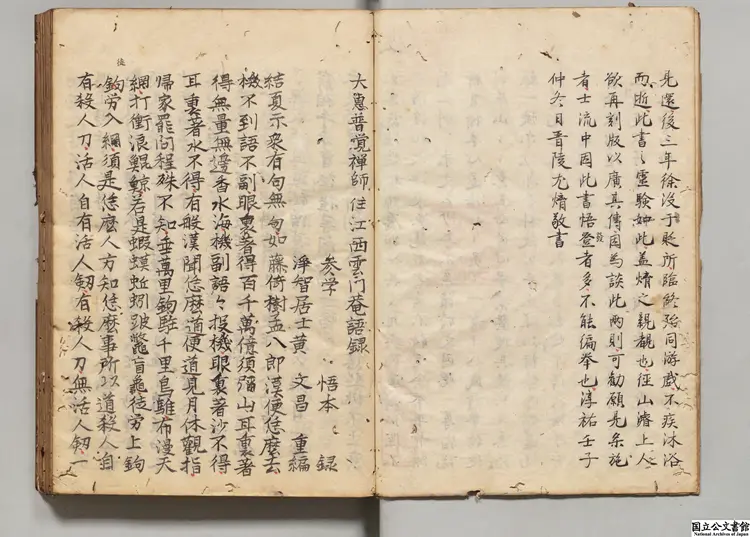 見還後三年徐沒于貶所臨終殆同游戲不疾沐浴
而逝此書之靈驗如此盖焴之親覩也徑山濬上人
欲再刻版以廣其傳因為談此兩則可勸願見聞施
者士流中因此書悟發者多不能徧舉也淳祐壬子
仲冬日晋陵尤焴敬書
大惠普覺禅師住江西雲門菴語録
参学 悟本 録
淨智居士黄 文昌 重編
結夏示衆有句無句如藤倚樹孟八郎漢便恁麼去
機不到語不副眼裏著得百千萬億須弥山耳裏著
得無量無邊香水海機副語々投機眼裏著沙不得
耳裏著水不得有般漢聞恁麼道便道見月休觀指
帰家罷問程殊不知垂萬里鉤駐千里烏騅布漫天
網打衝浪鯤鯨若是蝦蟆蚯蚓跛鼈盲龜徒勞上鉤
徒
鉤勞入網須是恁麼人方知恁麼事所以道殺人自
有殺人刀活人自有活人劒有殺人刀無活人劒一
国立公文書館
National Archives of Japan